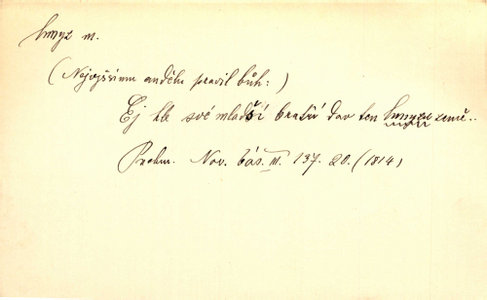 hmyz m.
(Nejvyššímu andělu pravil bůh:)
Ej tě své mladší bratří dav ten hmyzu země..
Puchm. Nov. bás. III. 137. 20. (1814)